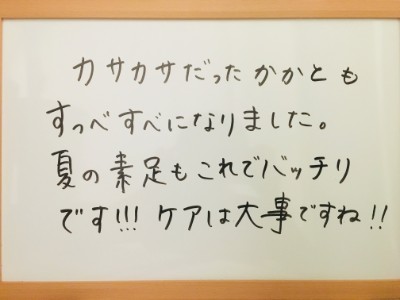 カサカサだったかかとも
すっべすべになりました。
夏の素足もこれでバッチリ
です!!! ケアは大事ですね!!